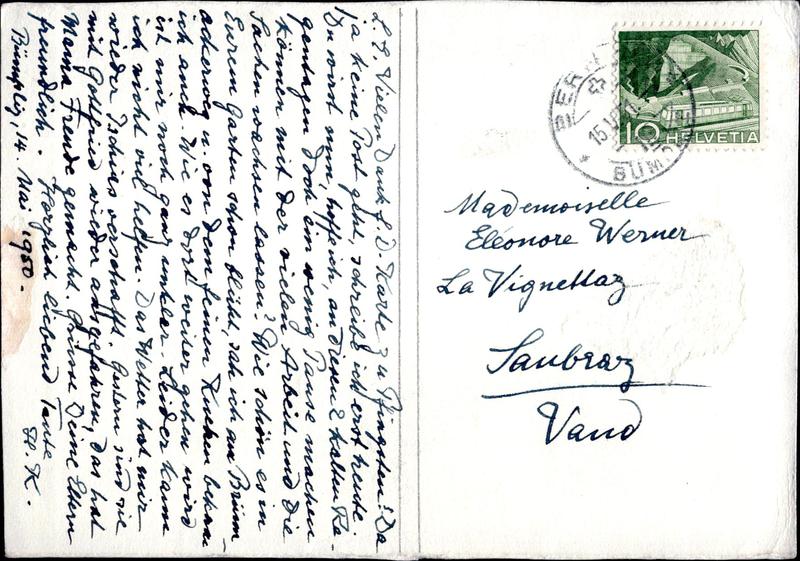 L. E. Vielen Dank f. D. Karte zu Pfingsten! Da
ja keine Post geht, schreibe ich erst heute.
Du wirst nun, hoffe ich, an diesen 2 kalten Re-
gentagen doch ein wenig Pause machen
können mit der vielen Arbeit und die
Sachen wachsen lassen? Wie schön es in
Eurem Garten schon blüht, sah ich am Brünn
ackerweg u. von dem feinen Kuchen bekam
ich auch. Wie es dort weiter gehen wird
ist mir noch ganz unklar. Leider kann
ich nicht viel helfen. Das Wetter hat mir
wieder verschafft. Gestern sind sie
mit Gottfried wieder ausgefahren, das hat
Mama Freude gemacht. Grüsse Deine Eltern
freundlich. Herzlich liebend Tante
H. K.
Bümpliz, 14. Mai 1950.
BERN
15.V.
BÜMPLIZ
10 HELVETIA
Mademoiselle
Eléonore Werner
La Vignettaz
Saubraz
Vaud